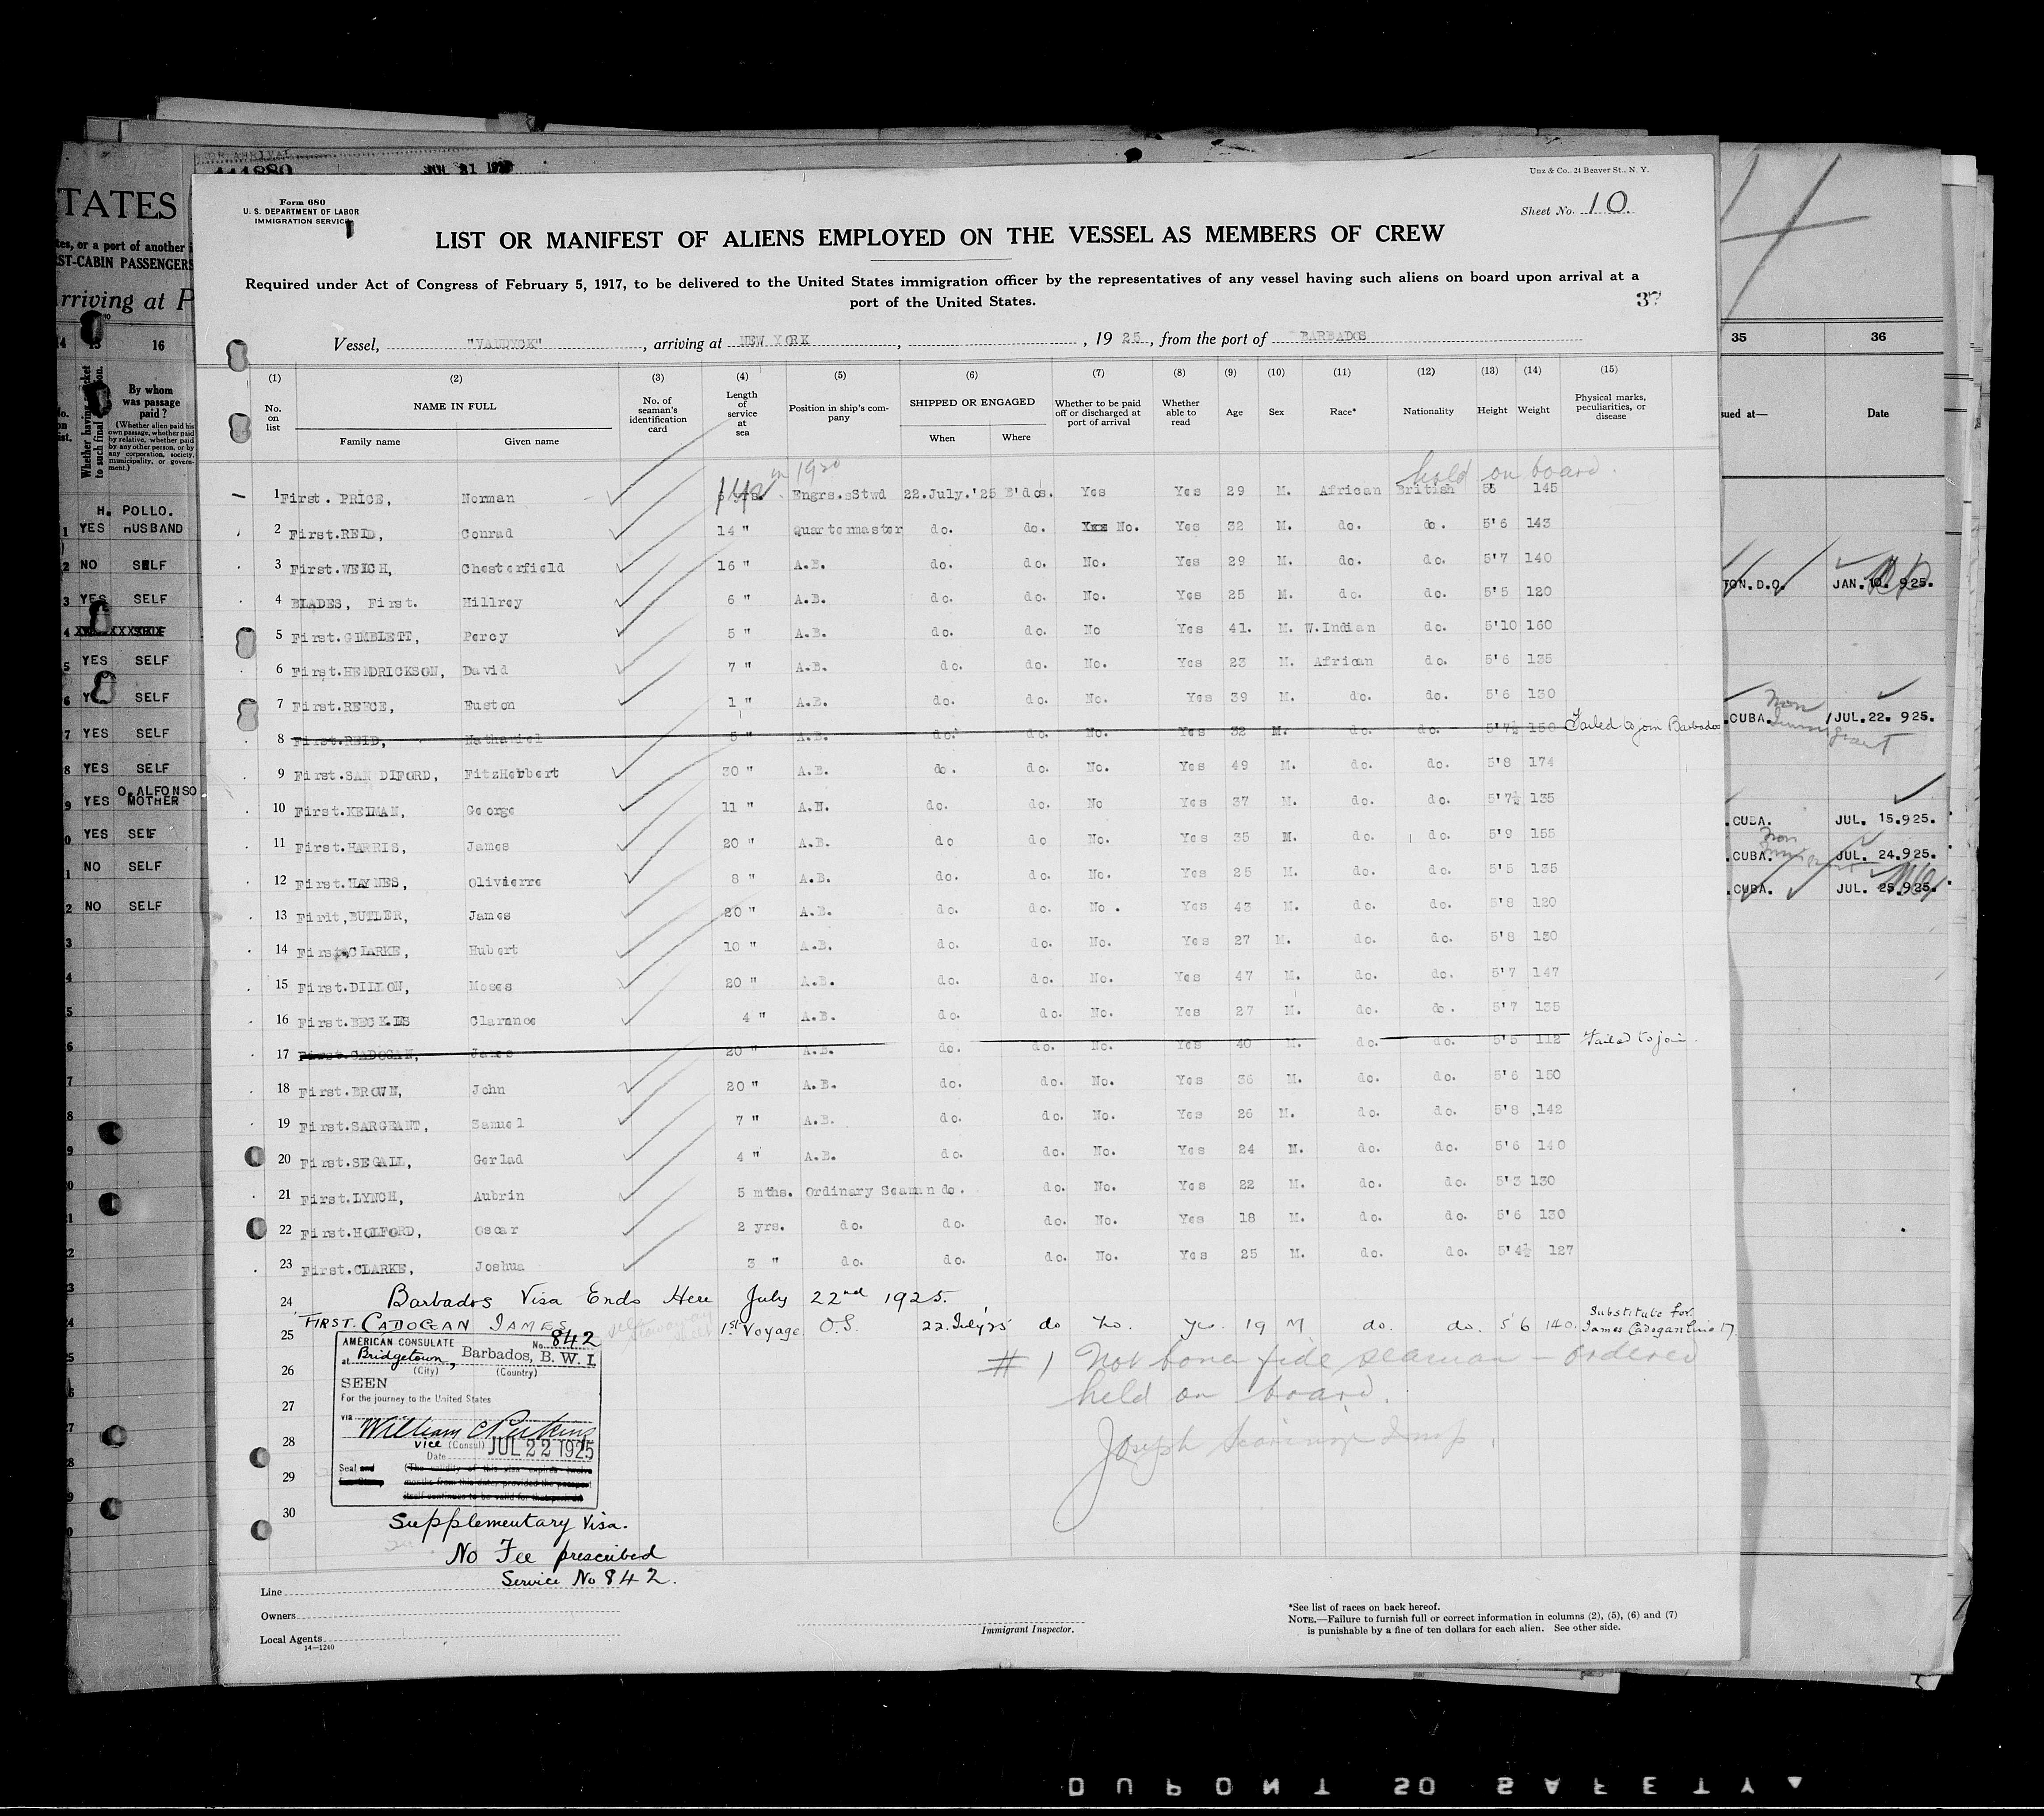 Unz & Co., 24 Beaver St., N. Y.
Form 680
U. S. DEPARTMENT OF LABOR
IMMIGRATION SERVICE
Sheet No. 10
LIST OR MANIFEST OF ALIENS EMPLOYED ON THE VESSEL AS MEMBERS OF CREW
Required under Act of Congress of February 5, 1917, to be delivered to the United States immigration officer by the representatives of any vessel having such aliens on board upon arrival at a
port of the United States.
Vessel, "VANDYCK", arriving at NEW YORK, , 1925, from the port of BARBADOS
(1) (2) (3) (4) (5) (6) (7) (8) (9) (10) (11) (12) (13) (14) (15)
No. on list
NAME IN FULL
Family name Given name
No. of seaman's identification card
Length of service at sea
Position in ship's company
SHIPPED OR ENGAGED
When Where
Whether to be paid off or discharged at port of arrival
Whether able to read
Age Sex Race* Nationality Height Weight
Physical marks, peculiarities, or disease
in 1920
held on board.
1 First. PRICE, Norman yrs. Engrs.sStwd 22.July.'25 B'dos. Yes Yes 29 M. African British 145
2 First.REID, Conrad 14 " Quartermaster do. do. No. Yes 32 M. do. do. 5'6 143
3 First.WEICH, Chesterfield 16 " A.B. do. do. No. Yes 29 M. do. do. 5'7 140
4 BLADES, First. Hillrey 6 " A.B. do. do. No. Yes 25 M. do. do. 5'5 120
5 First.GIMBLETT, Percy 5 " A.B. do. do. No Yes 41. M. W.Indian do. 5'10 160
6 First.HENDRICKSON, David 7 " A.B. do. do. No. Yes 23 M. African do. 5'6 135
7 First.REECE, Euston 1 " A.B. do. do. No. Yes 39 M. do. do. 5'6 130
8 First.REID, Nathaniel 5 " A.B. do. do. No. Yes 32 M. do. do. 5'7½ 150 Failed to join Barbados
9 First.SANDIFORD, FitzHerbert 30 " A.B. do. do. No. Yes 49 M. do. do. 5'8 174
10 First.KEIMAN, George 11 " A.B. do. do. No Yes 37 M. do. do. 5'7½ 135
11 First.HARRIS, James 20 " A.B. do do No. Yes 35 M. do. do. 5'9 155
12 First.HAYNES, Olivierre 8 " A.B. do. do. No. Yes 25 M. do. do. 5'5 135
13 Firit,BUTLER, James 20 " A.B. do. do. No. Yes 43 M. do. do. 5'8 120
14 First.CLARKE, Hubert 10 " A.B. do. do. No. Yes 27 M. do. do. 5'8 130
15 First.DILLON, Moses 20 " A.B. do. do. No. Yes 47 M. do. do. 5'7 147
16 First.BECKLES Clarance 4 " A.B. do. do. No. Yes 27 M. do. do. 5'7 135
17 First.CADOGAN, James 20 " A.B. do. do. No. Yes 40 M. do. do. 5'5 112 Failed to join.
18 First.BROWN, John 20 " A.B. do. do. No. Yes 36 M. do. do. 5'6 150
19 First.SARGEANT, Samuel 7 " A.B. do. do. No. Yes 26 M. do. do. 5'8 142
20 First.SEGALL, Gerlad 4 " A.B. do. do. No. Yes 24 M. do. do. 5'6 140
21 First.LYNCH, Aubrin 5 mths. Ordinary Seaman do. do. No. Yes 22 M. do. do. 5'3 130
22 First.HOLFORD, Oscar 2 yrs. do. do. do. No. Yes 18 M. do. do. 5'6 130
23 First.CLARKE, Joshua 3 " do. do. do. No. Yes 25 M. do. do. 5'4½ 127
24 Barbados Visa Ends Here July 22nd 1925.
25 FIRST. CADOGAN JAMES 1st Voyage O.S. 22.July'25 do No. Yes. 19 M do. do. 5'6 140. Substitute for James Cadogan line 17.
26
27
28
29
30
AMERICAN CONSULATE No. 842
at Bridgetown, Barbados, B. W. I.
(City) (Country)
SEEN
For the journey to the United States
via
William C Perkins
vice (Consul) JUL 22 1925
Date
Seal and
(The validity of this visa expires twelve
months from this date, provided the passport
itself continues to be valid for that period)
# 1 Not bona fide seaman - ordered
held on board.
Joseph
Supplementary Visa.
No Fee prescribed
Service No 842.
Line
Owners
Local Agents
14—1240
Immigrant Inspector.
*See list of races on back hereof.
NOTE.—Failure to furnish full or correct information in columns (2), (5), (6) and (7)
is punishable by a fine of ten dollars for each alien. See other side.
TATES
tes, or a port of another
ST-CABIN PASSENGERS
rriving at P
16
By whom was passage paid?
(Whether alien paid his own passage, whether paid by relative, whether paid by any other person, or by any corporation, society, municipality, or government.)
H. POLLO.
YES HUSBAND
NO SELF
YES SELF
YES SELF
SELF
YES SELF
YES SELF
O.ALFONSO
YES MOTHER
YES SELF
NO SELF
NO SELF
35 36
sued at— Date
TON.D.O. JAN.10.925.
.CUBA. Non Immigrant JUL.22.925.
.CUBA. JUL. 15.925.
.CUBA. Non Immigrant JUL. 24.925.
.CUBA. JUL. 25.925.
DUPONT SO SAFETY